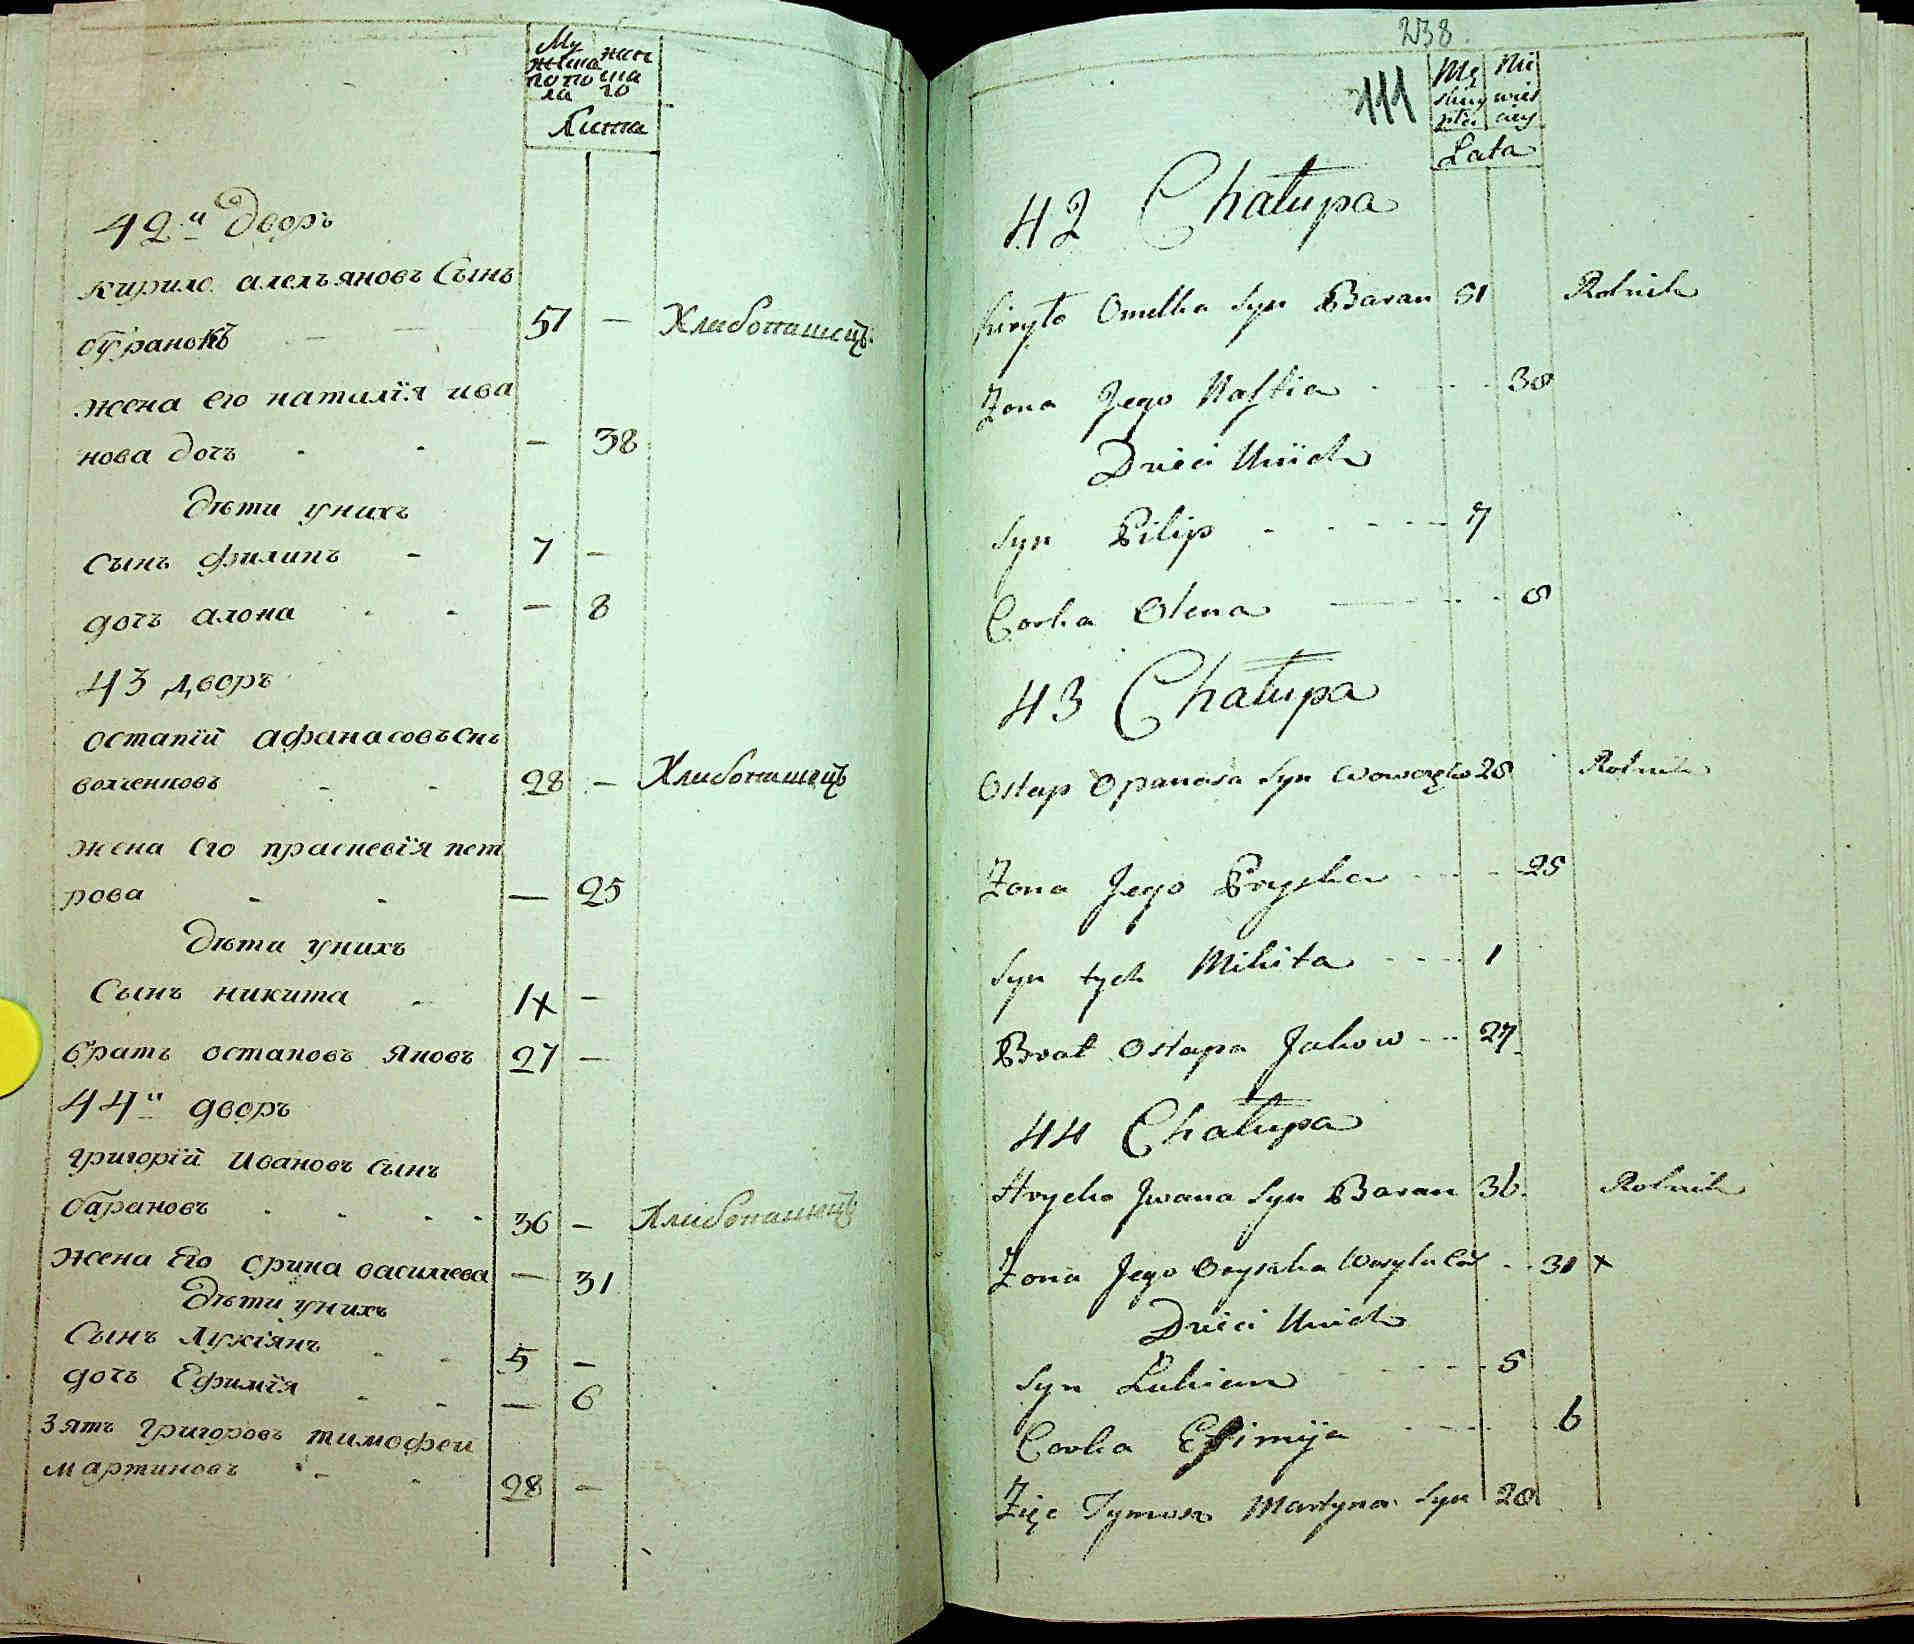 Му жеска пола
женскаго
Лита
42й Дворъ
Кирило алелъяновъ Сынъ
буранокъ - 51 - Хлибопашецъ
жена его наталія ива
нова дочъ - - - 38
Дѣти унихъ
Сынъ филипъ - 7 -
дочъ алона - - - 8
43 дворъ
остапій афанасовъ снъ
волченковъ - - 28 - Хлибопашецъ
жена его прасневія пет
рова - - - 25
Дѣти унихъ
Сынъ никита - 1x -
братъ остаповъ яковъ 27 -
44й дворъ
григорій Ивановъ сынъ
барановъ - - - - 36 - Хлибопашецъ
жена Его орина василева - 31
Дѣти унихъ
Сынъ Лукіянъ - - 5 -
дочъ Ефимія - - - 6
зять григоровъ тимофеи
мартиновъ - - 28 -
238
111
Lata
42 Chałupa
Kiryło Omelka Syn Baran 51 Rolnik
Zona Jego Nastia - - - 38
Dzieci Unich
Syn Pilip - - - - 7
Corka Olena - - - 8
43 Chałupa
Ostap Opanasa Syn 28 Rolnik
Zona Jego Pryska - - - 25
Syn tych Mikita - - - 1
Brat Ostapa Jakow - - 27
44 Chałupa
Hrycko Jwana Syn Baran 36 Rolnik
Zona Jego Oryszka - - 31 x
Dzieci Unich
Syn Łukian - - - - 5
Corka Efimija - - - - 6
Zięc Tymosz Martyna Syn 28